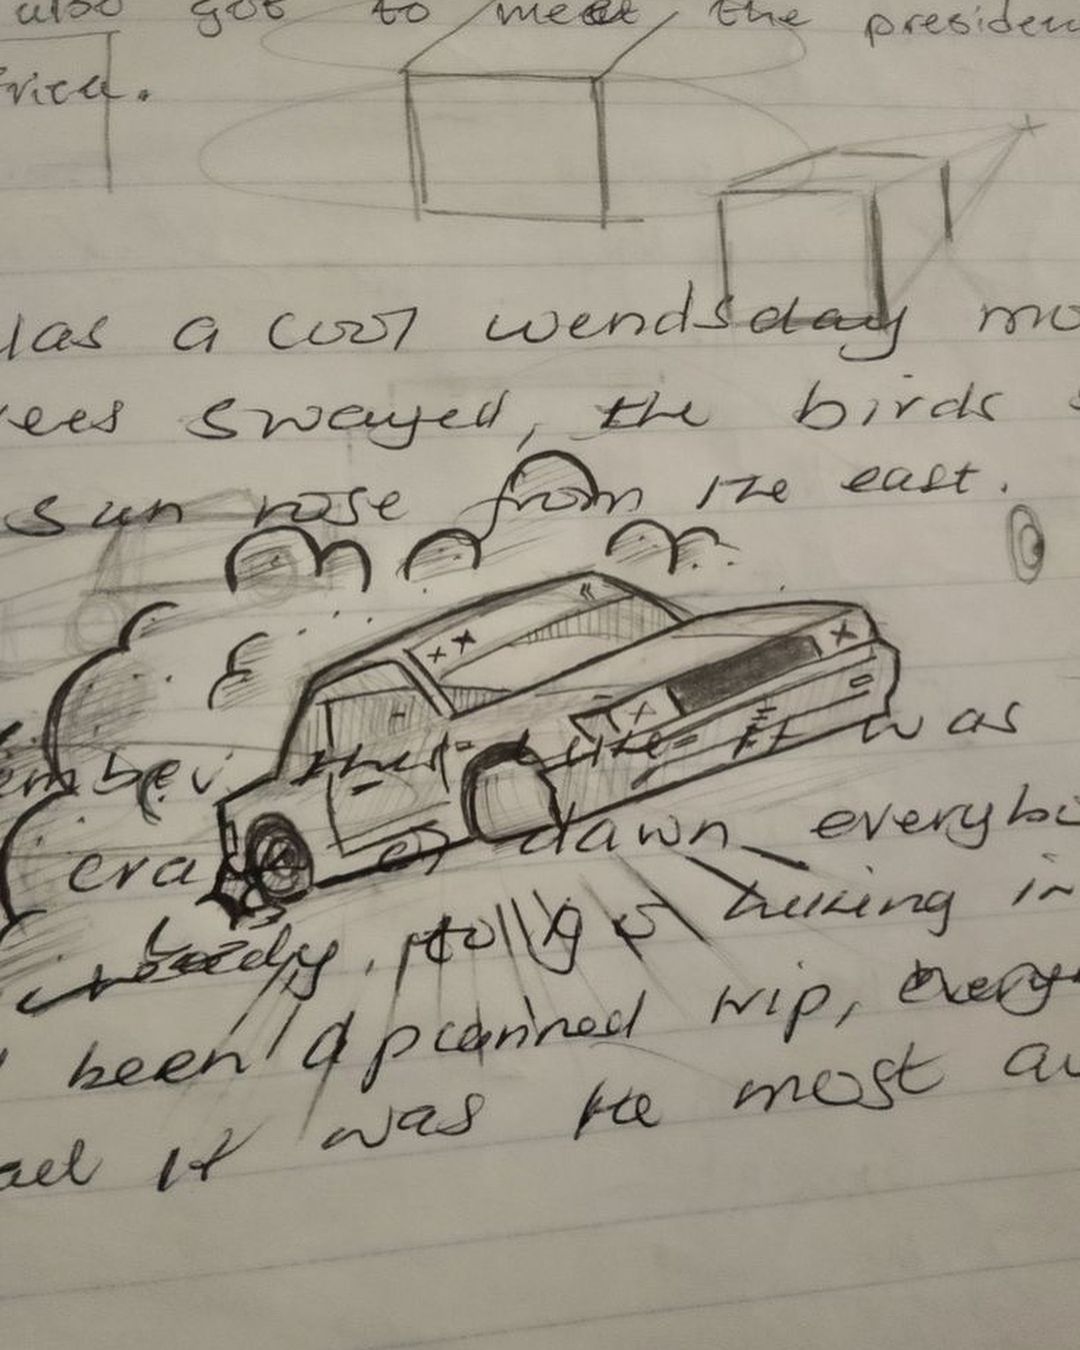 also got to meet the presiden
frica.
was a cool wendsday mo
rees swayed, the birds s
sun rose from the east.
ember this like it was
crack of dawn everybo
ready, hiking in
been a planned trip, every
ael it was the most au